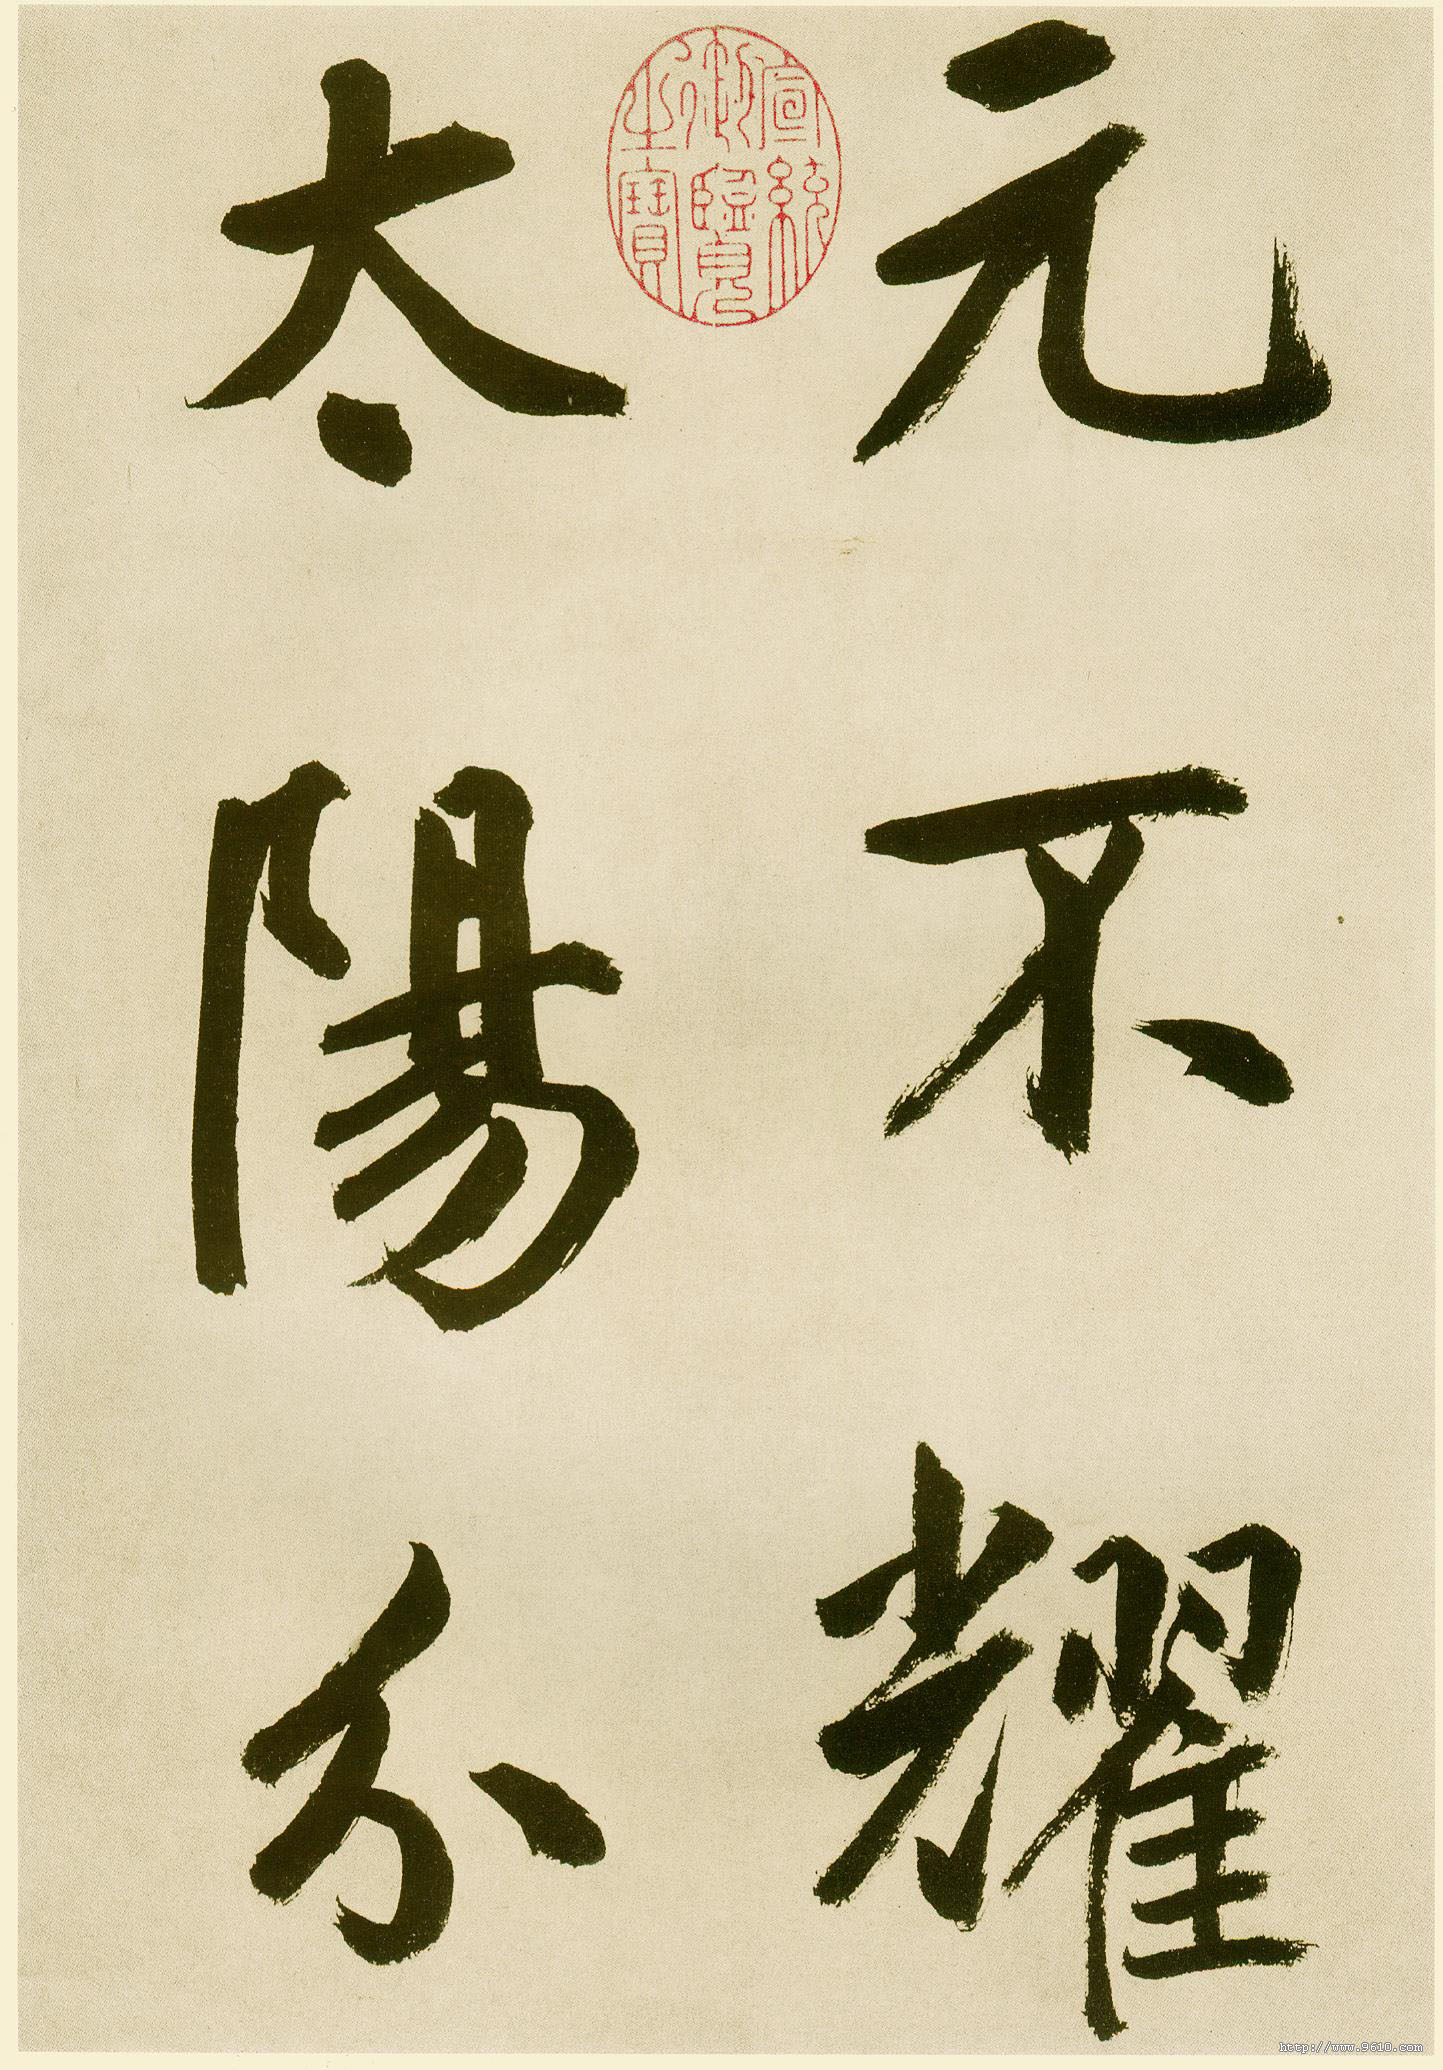 元不耀
太陽分
宣統
御覽
之寶
http://www.9610.com